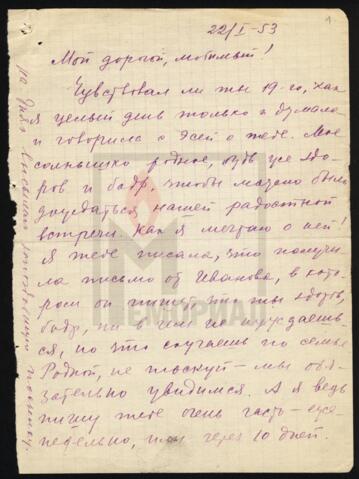 1.
22/I-53
Мой дорогой, любимый!
Чувствовал ли ты 19-го, как
я целый день только и думала
и говорила с Эсей о тебе. Мое
солнышко родное, будь уже здо-
ров и бодр, чтобы можно было
дождаться нашей радостной
встречи. Как я мечтаю о ней!
Я тебе писала, что получи-
ла письмо от Иванова, в кото-
ром он пишет, что ты здоров,
бодр, ни в чем не нуждаешь-
ся, но что скучаешь по семье.
Родной, не тоскуй - мы обя-
зательно увидимся. А я ведь
пишу тебе очень часто - еже-
недельно, или через 10 дней.
МЕМОРИАЛ